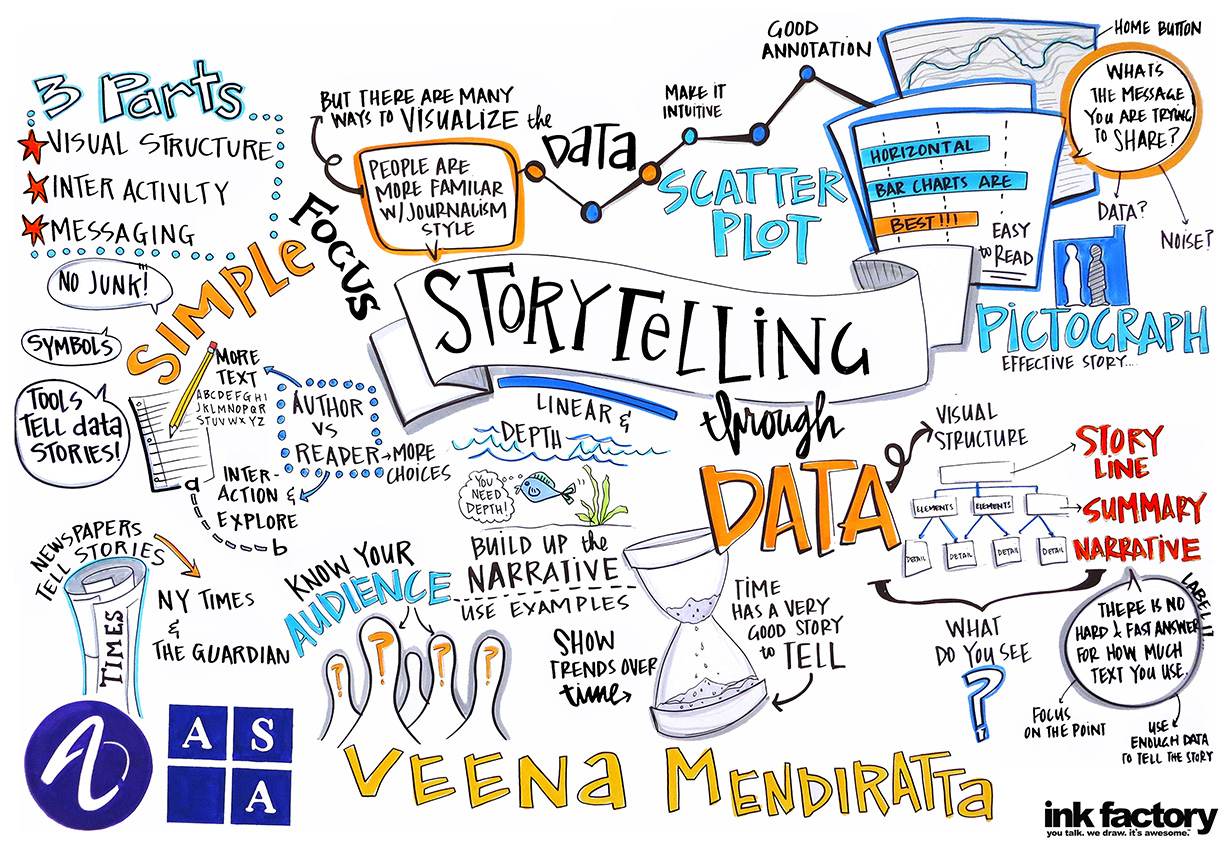 3 Parts
VISUAL STRUCTURE
INTER ACTIVITY
MESSAGING
BUT THERE ARE MANY
WAYS TO VISUALIZE the
DATA
PEOPLE ARE
MORE FAMILAR
W/JOURNALISM
STYLE
MAKE IT
INTUITIVE
GOOD
ANNOTATION
SCATTER
PLOT
HOME BUTTON
WHATS
THE MESSAGE
YOU ARE TRYING
TO SHARE?
HORIZONTAL
BAR CHARTS ARE
BEST!!!
EASY
to READ
DATA?
NOISE?
PICTOGRAPH
EFFECTIVE STORY....
FOCUS
SIMPLE
NO JUNK!
SYMBOLS
TOOLS
TELL data
STORIES!
STORYTELLING
through
DATA
MORE
TEXT
ABCDEFGHI
JKLMNOPQR
STUVWXYZ
AUTHOR
VS
READER
MORE
CHOICES
INTER-
ACTION &
EXPLORE
a
b
LINEAR &
DEPTH
YOU
NEED
DEPTH!
BUILD UP the
NARRATIVE
USE EXAMPLES
VISUAL
STRUCTURE
STORY
LINE
ELEMENTS
ELEMENTS
SUMMARY
DETAIL
DETAIL
DETAIL
DETAIL
NARRATIVE
WHAT
DO YOU SEE
?
LABEL IT
THERE IS NO
HARD & FAST ANSWER
FOR HOW MUCH
TEXT YOU USE.
FOCUS
ON THE POINT
USE
ENOUGH DATA
TO TELL THE STORY
NEWSPAPERS
TELL STORIES
TIMES
NY TIMES
&
THE GUARDIAN
KNOW YOUR
AUDIENCE
? ? ? ?
SHOW
TRENDS OVER
time
TIME
HAS A VERY
GOOD STORY
to TELL
A
A S
A
VEENa MENDIRATTa
ink factory
you talk. we draw. it's awesome.